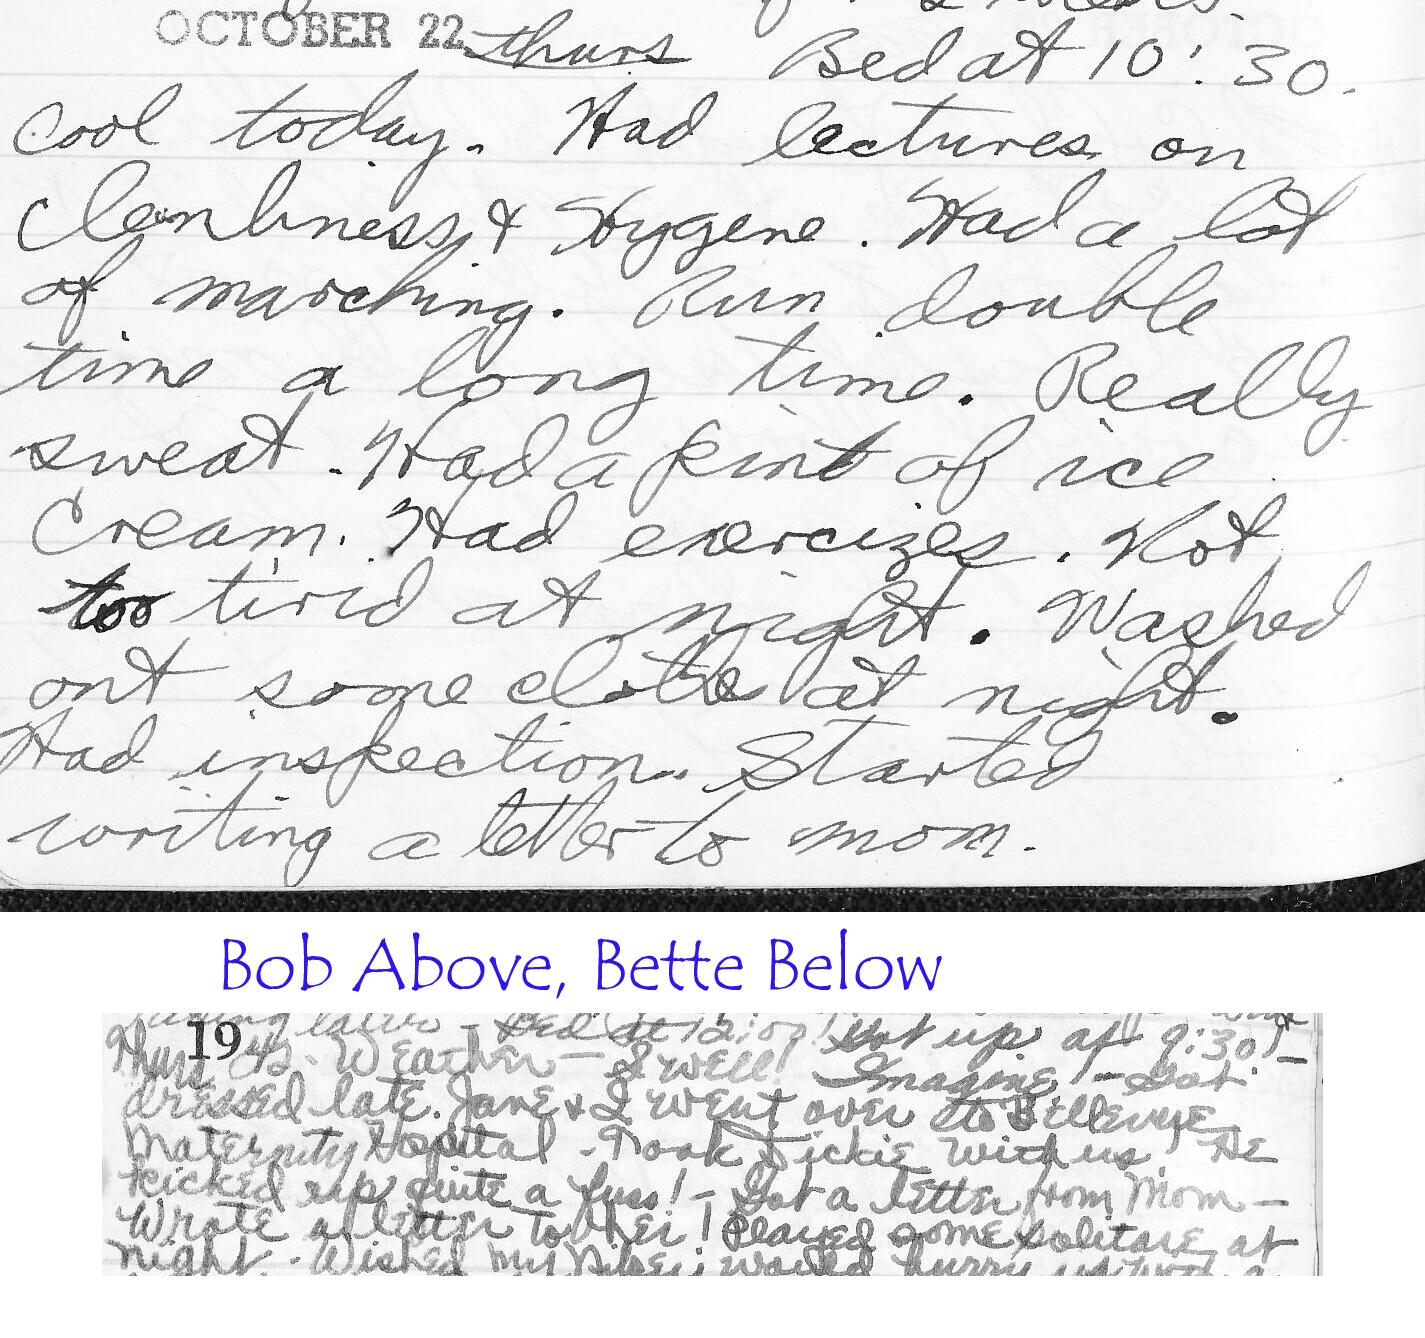 OCTOBER 22 thurs Bed at 10:30.
Cool today. Had lectures on
Clenliness & Hygene. Had a lot
of marching. Run double
time a long time. Really
sweat. Had a pint of ice
Cream. Had exercizes. Not
too tired at night. Washed
out some clothes at night.
Had inspection. Started
writing a letter to mom.
Bob Above, Bette Below
Bed at 12:00! Got up at 9:30! -
Thurs 1942 - Weather - Swell! Imagine! - Got
dressed late. Jane & I went over to Bellevue
Maternity Hospital - Took Dickie with us! He
kicked up quite a fuss! - Got a letter from Mom -
Wrote a letter to her! Played some solitare at
night. - Wished my would hurry up